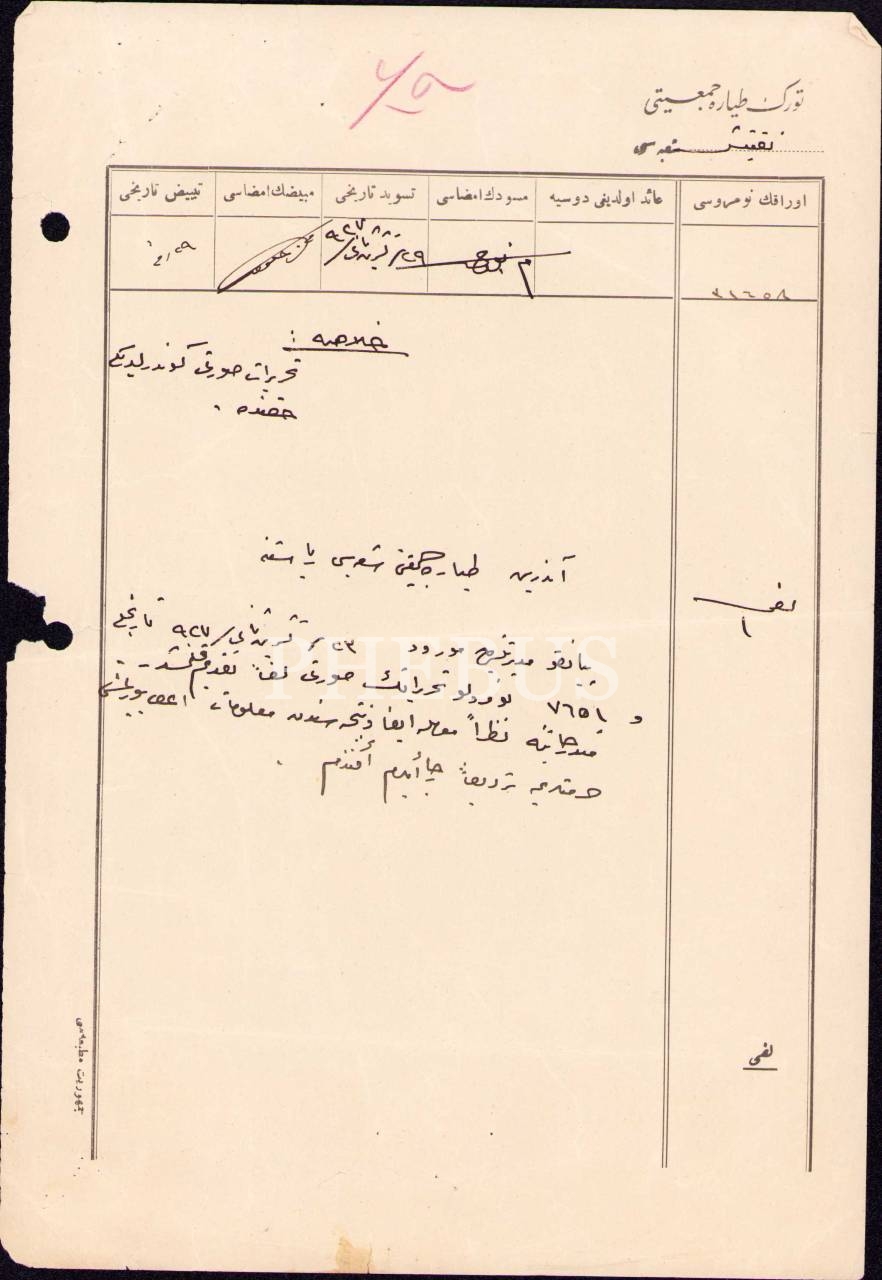 تورك طياره جمعيتى
تفتيش شعبه سى
اوراقك نومروسى
عائد اولدينى دوسيه
مسودك امضاسى
تسويد تاريخى
مبيضك امضاسى
تبييض تاريخى
٢٩/تشرين ثانى/٩٢٧
خلاصه :
تحريرات صورتى كوندرلديكى
حقنده .
طياره جمعيتى شعبه سى رياستنه
لفى
١
٢٣/تشرين ثانى/٩٢٧ تاريخلى
و ٧٦٥١ نومرولو تحريراتك صورتى لفاً تقديم قلنمشدر
مندرجاتنه نظراً معامله ايفا و نتيجه سندن معلومات اعطا بيورلمسنى
رجا ايدرم افندم .
لفى
جمهوريت مطبعه سى
PHEBUS